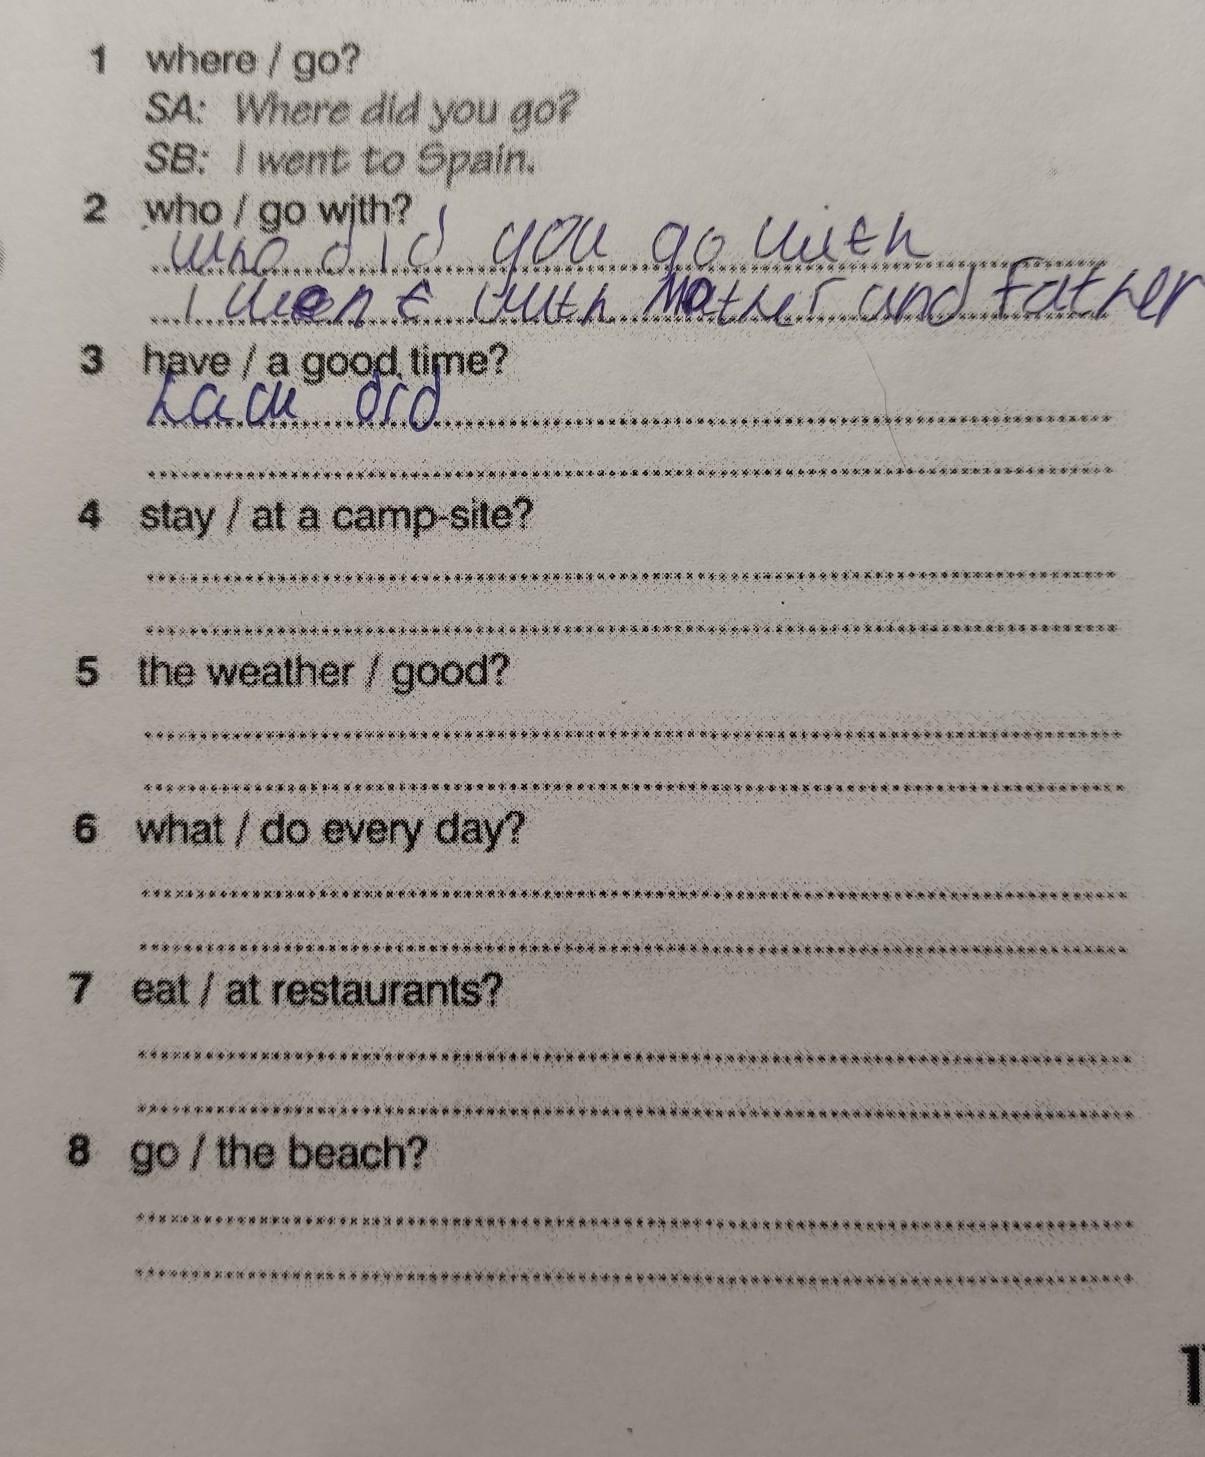 1 where / go?
SA: Where did you go?
SB: I went to Spain.
2 who / go with?
who did you go with
I went with Mother and Father
3 have / a good time?
have did
4 stay / at a camp-site?
5 the weather / good?
6 what / do every day?
7 eat / at restaurants?
8 go / the beach?
1